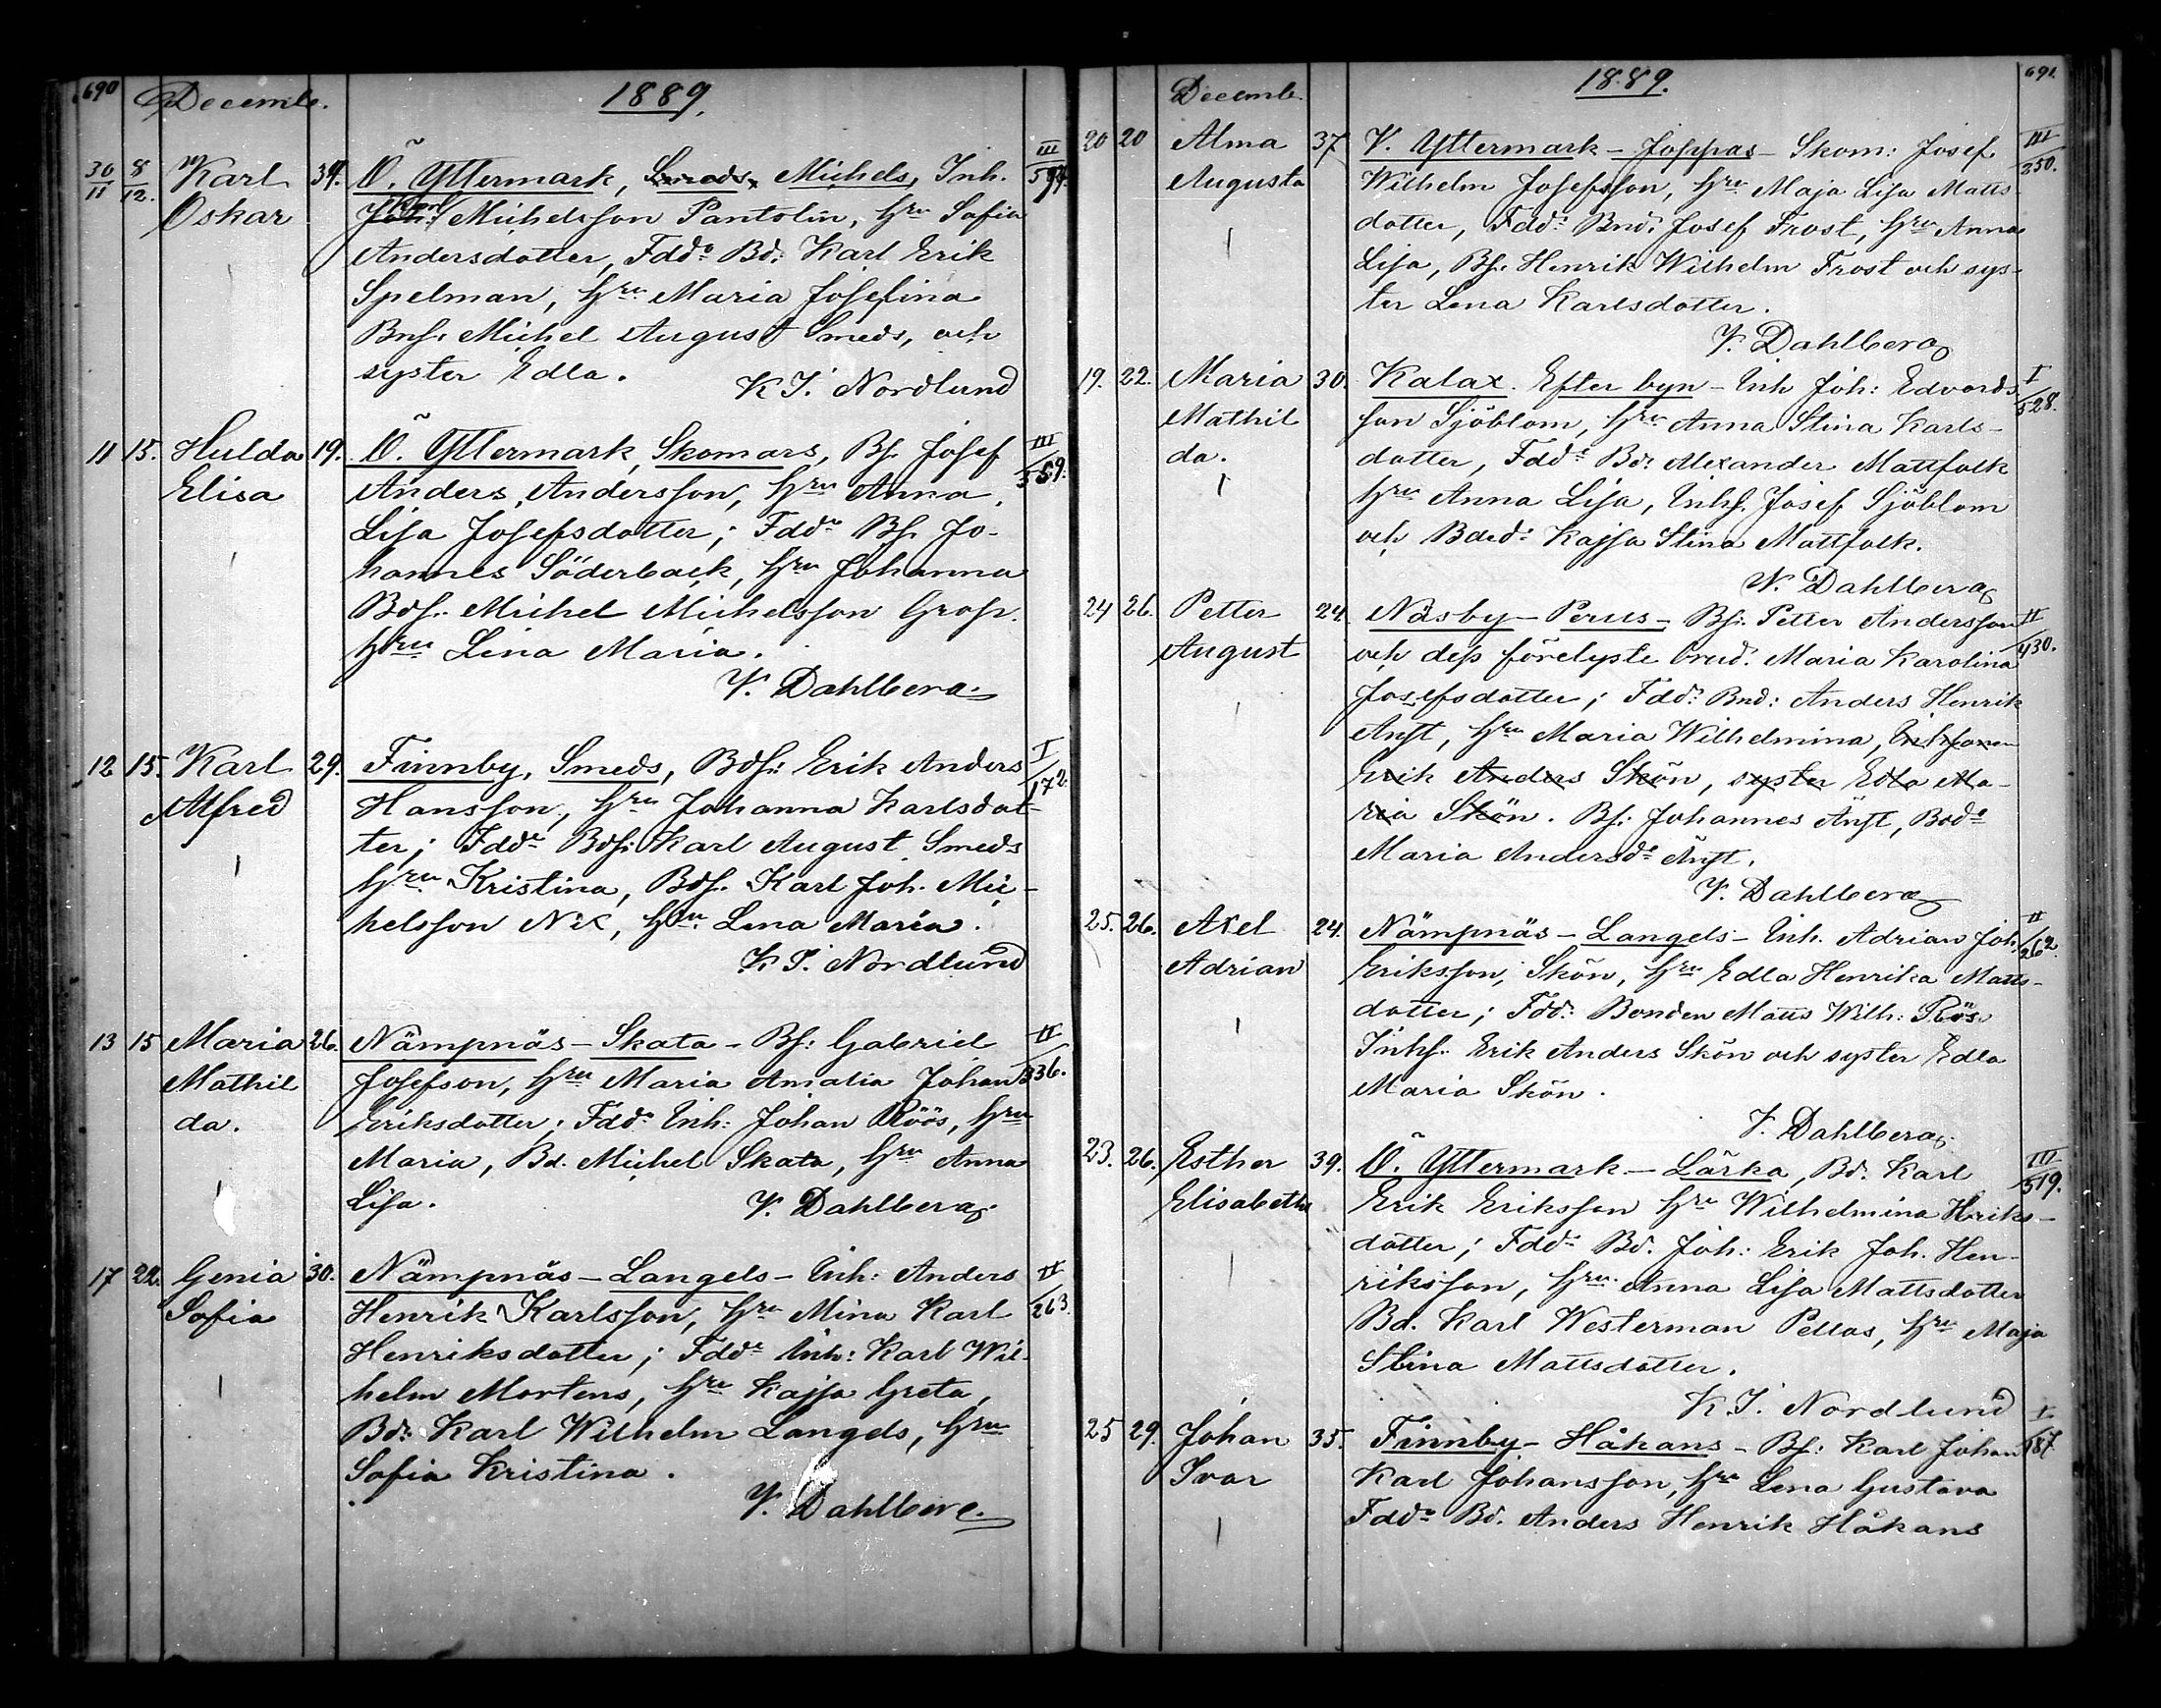 690 Decemb. 1889.
30/11 8/12. Karl 34. Ö. Yttermark, Smeds, Michels, Inh. III/594.
Oskar Johan Michelsson Pantolin, hru Sofia
Andersdotter, Fddr Bd: Karl Erik
Spelman, hru Maria Josefina
Bns: Michel August Smeds, och
syster Edla.
K J. Nordlund
11 15. Hulda 19. Ö. Yttermark, Skomars, Bs. Josef III/559.
Elisa Anders Andersson, hru Anna
Lisa Josefsdotter; Fddr Bs. Jo-
hannes Söderback, hru Johanna
Bds. Michel Michelsson Gros.
hru Lina Maria.
V. Dahlberg
12 15. Karl 29. Finnby, Smeds, Bds: Erik Anders I/172.
Alfred Hansson, hru Johanna Karlsdot-
ter; Fddr Bds: Karl August Smeds
hru Kristina, Bds. Karl Joh. Mic-
helsson Nix, hru Lena Maria.
K J. Nordlund
13 15 Maria 26. Nämpnäs - Skata - Bs: Gabriel II/336.
Mathil Josefson, hru Maria Amalia Johan
da. Eriksdotter; Fddr Inh: Johan Röös, hru
Maria, Bd. Michel Skata, hru Anna
Lisa. V. Dahlberg
17 22. Genia 30. Nämpnäs - Langels - Inh: Anders II/263.
Sofia Henrik Karlsson, hru Mina Karl
Henriksdotter; Fddr Inh: Karl Wil-
helm Mortens, hru Kajsa Greta,
Bd: Karl Wilhelm Langels, hru
Sofia Kristina.
V. Dahlberg
Decemb. 1889. 691.
20 20 Alma 37 V. Yttermark - Joppas - Skom: Josef III/250.
Augusta Wilhelm Josefsson, hru Maja Lisa Matts
dotter, Fddr: Bnd: Josef Frost, hru Anna
Lisa, Bs: Henrik Wilhelm Frost och sys-
ter Lena Karlsdotter.
V. Dahlberg
19. 22. Maria 30. Kalax. Efter byn - Inh Joh: Edvards I/528.
Mathil son Sjöblom, hru Anna Stina Karls-
da. dotter, Fddr Bd: Alexander Mattfolk
hru Anna Lisa, Inhs. Josef Sjöblom
och Bdrd: Kajsa Stina Mattfolk.
V. Dahlberg
24 26. Petter 24. Näsby - Perus - Bs: Petter Andersson II/430.
August och dess förelyste brud. Maria Karolina
Josefsdotter; Fddr: Bnd: Anders Henrik
Ängt, hru Maria Wilhelmina, Inhsonen
Erik Anders Skön, syster Edla Ma-
ria Skön. Bs: Johannes Ängt, Bdd:
Maria Andersdr Ängt.
V. Dahlberg
25. 26. Axel 24. Nämpnäs - Langels - Inh. Adrian Joh. II/262.
Adrian Eriksson, Skön, hru Edla Henrika Matts-
dotter; Fdd: Bonden Matts Wilh: Röös
Inhs. Erik Anders Skön och syster Edla
Maria Skön.
V. Dahlberg
23. 26. Esther 39. Ö. Yttermark - Lärka, Bd. Karl III/519.
Elisabeth Erik Eriksson hru Wilhelmina Hriks-
dotter; Fddr: Bd. Joh: Erik Joh. Hen-
riksson, hru Anna Lisa Mattsdotter
Bd. Karl Westerman Pellas, hru Maja
Stina Mattsdotter.
K. J. Nordlund
25 29. Johan 35. Finnby - Håkans - Bs: Karl Johan I/187
Ivar Karl Johansson, hru Lena Gustava
Fddr Bd. Anders Henrik Håkans